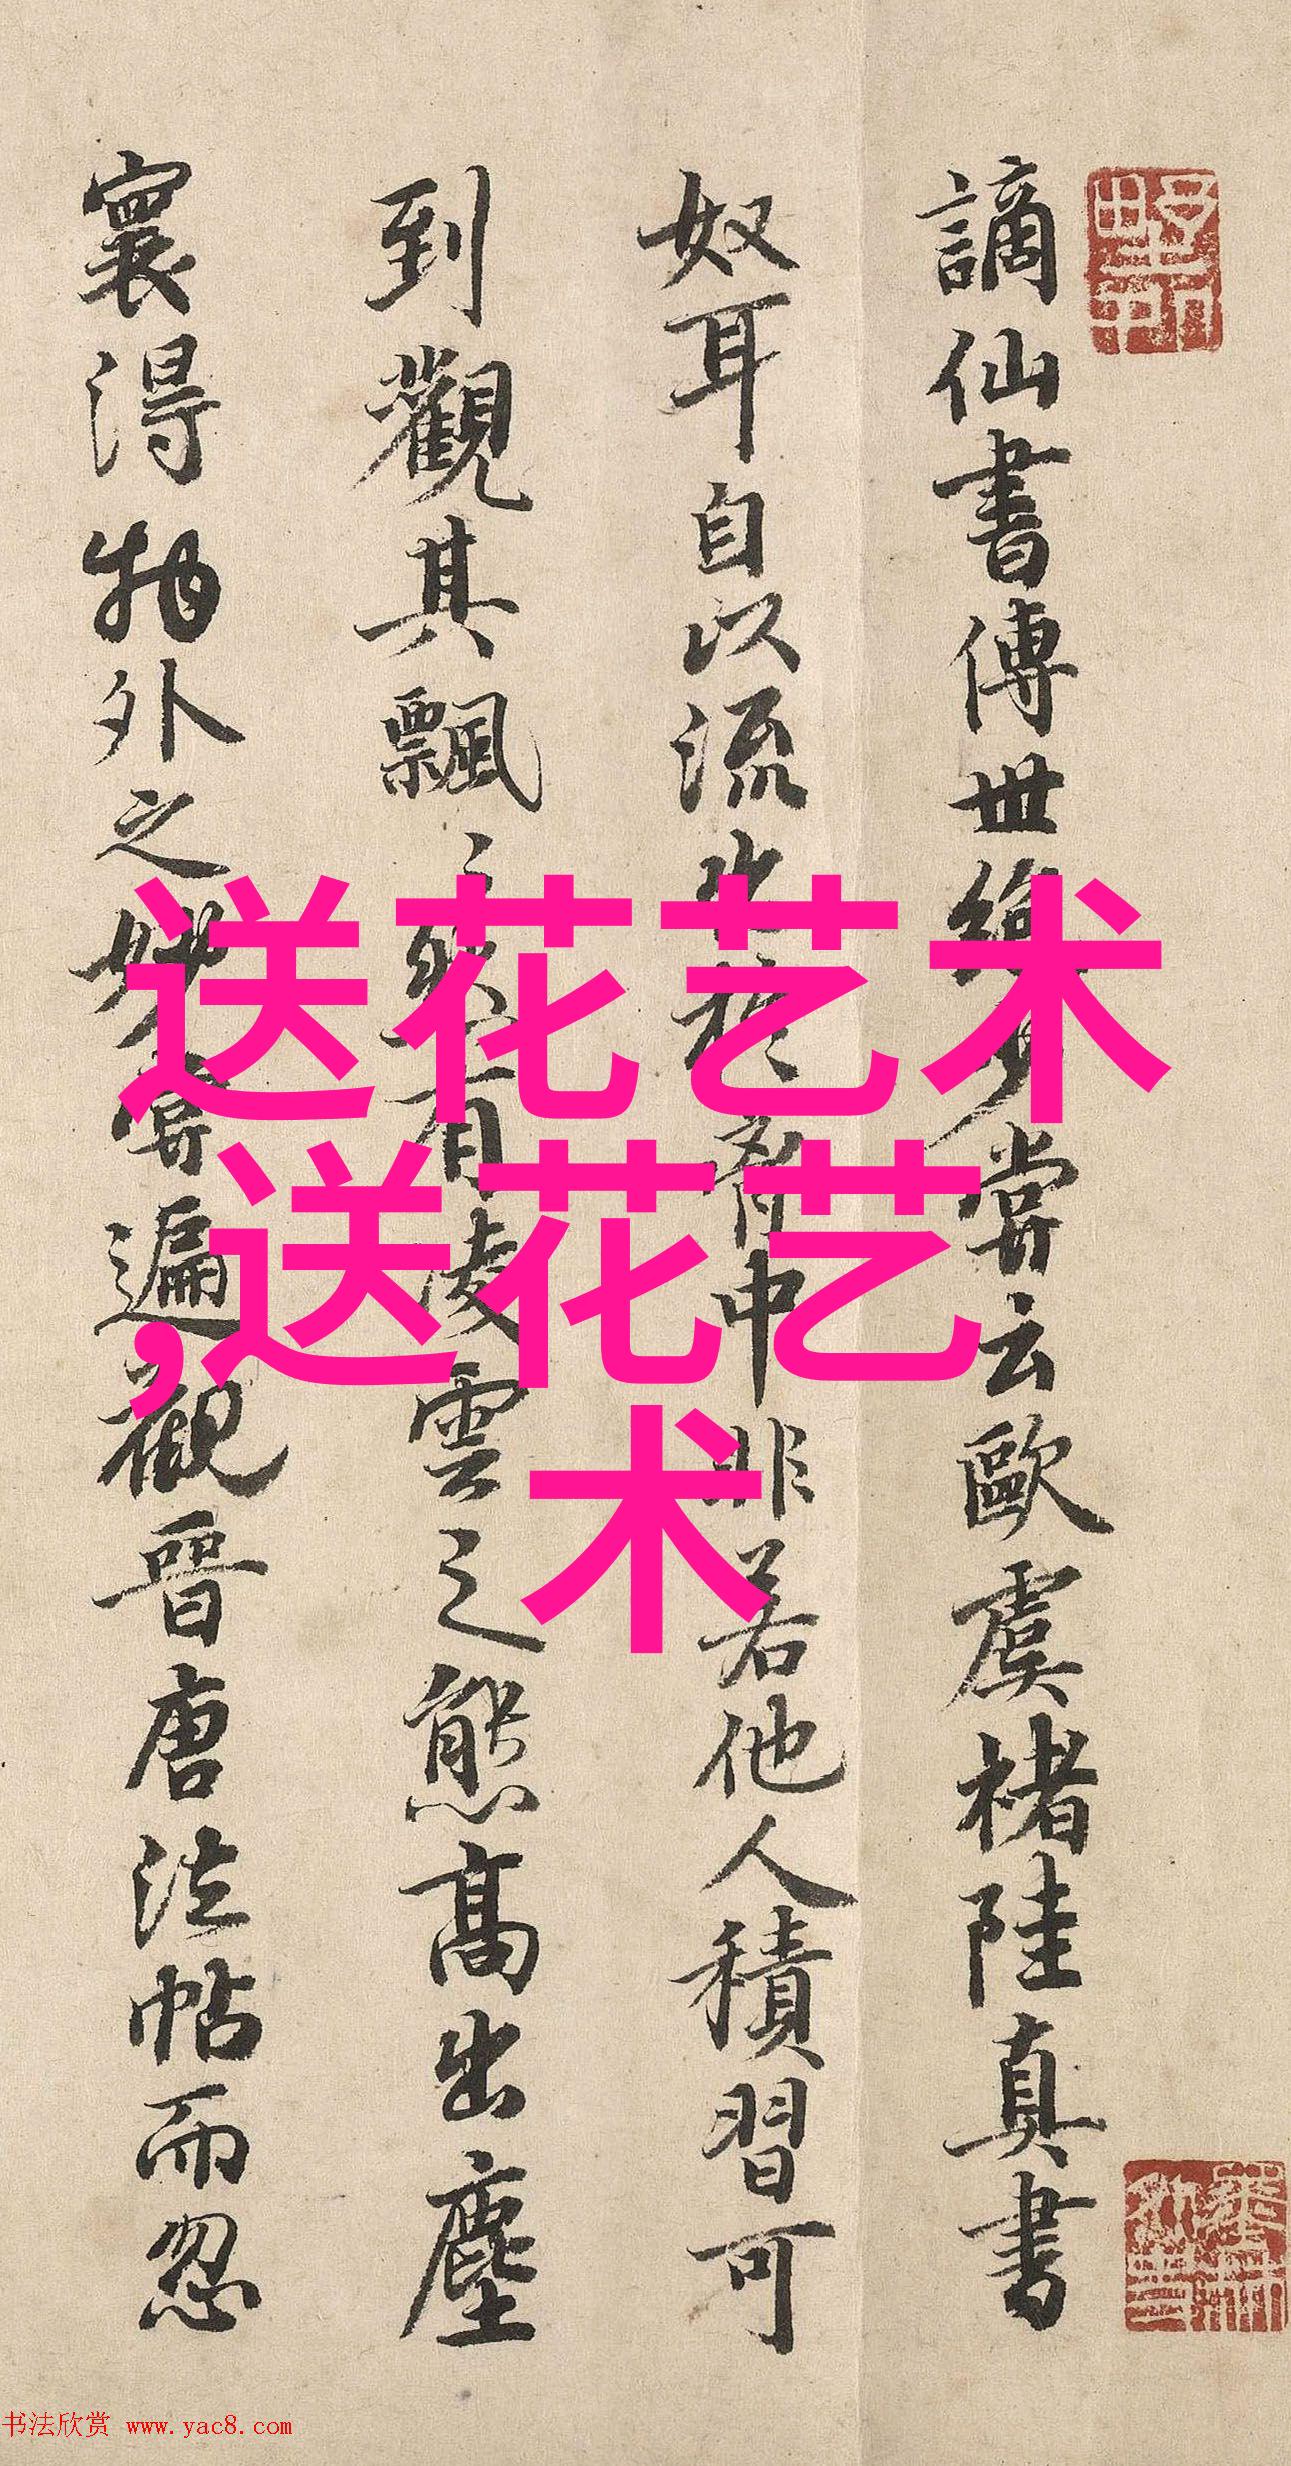 謫仙書傳世絕少嘗云歐虞褚陸真書
奴耳自以流出於胷中非若他人積習可
到觀其飄之然有凌雲之態高出塵
寰得物外之妙嘗遍觀晉唐法帖而忽
送花艺术
,送花艺
术
书法欣赏 www.yac8.com